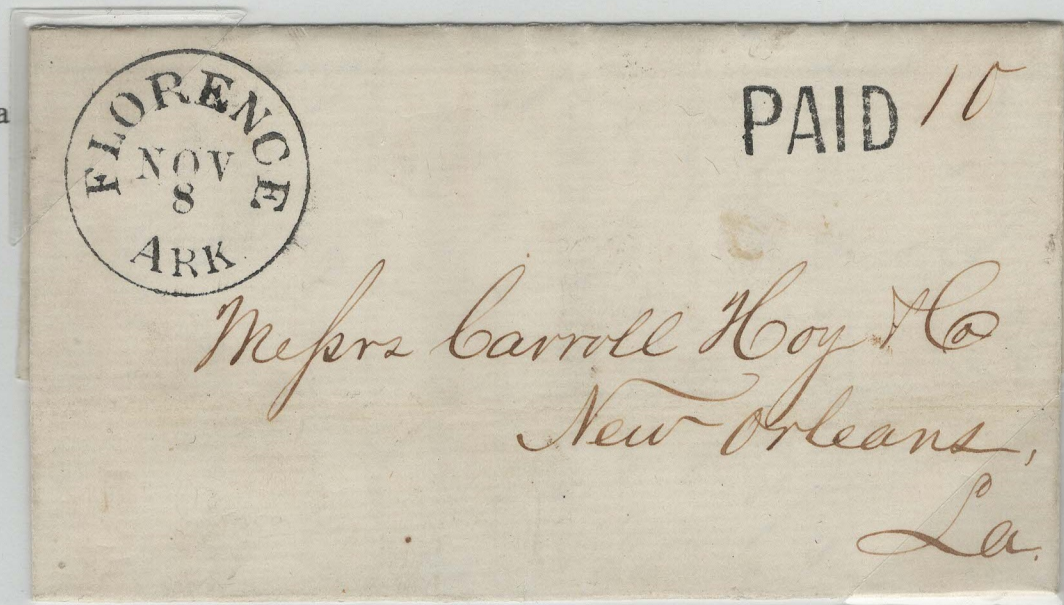 FLORENCE
NOV
8
ARK
PAID 10
Messrs Carroll Hoy & Co
New Orleans,
La.
a